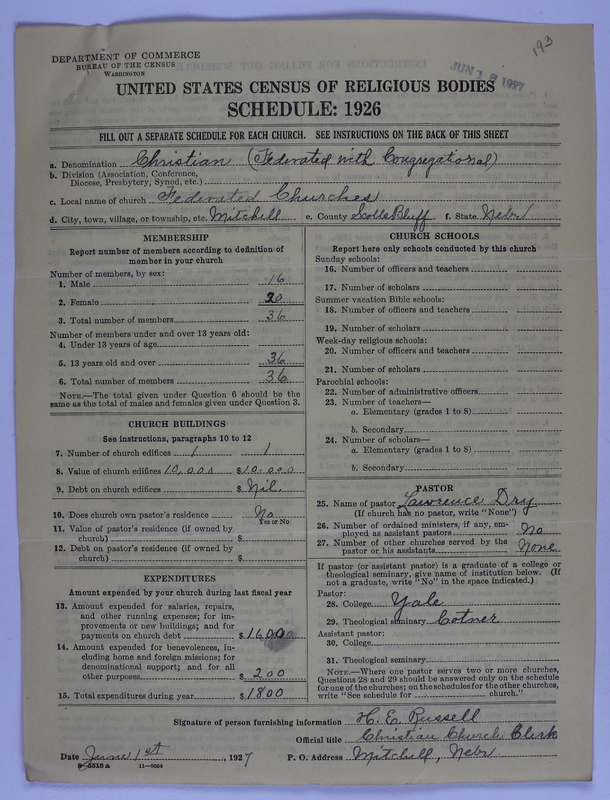 193
DEPARTMENT OF COMMERCE
BUREAU OF THE CENSUS
WASHINGTON
JUN 1927
UNITED STATES CENSUS OF RELIGIOUS BODIES
SCHEDULE: 1926
FILL OUT A SEPARATE SCHEDULE FOR EACH CHURCH. SEE INSTRUCTIONS ON THE BACK OF THIS SHEET
a. Denomination Christian (Federated with Congregational)
b. Division (Association, Conference,
Diocese, Presbytery, Synod, etc.)
c. Local name of church Federated Churches
d. City, town, village, or township, etc. Mitchell e. County Scotts Bluff f. State Nebr
MEMBERSHIP
Report number of members according to definition of
member in your church
Number of members, by sex:
1. Male 16
2. Female 20
3. Total number of members 36
Number of members under and over 13 years old:
4. Under 13 years of age
5. 13 years old and over 36
6. Total number of members 36
NOTE.—The total given under Question 6 should be
same as the total of males and females given under Question 3.
CHURCH BUILDINGS
See instructions, paragraphs 10 to 12
7. Number of church edifices 1 1
8. Value of church edifices 10,000 $10,000
9. Debt on church edifices $ Nil.
10. Does church own pastor's residence No
Yes or No
11. Value of pastor's residence (if owned by
church) $
12. Debt on pastor's residence (if owned by
church) $
EXPENDITURES
Amount expended by your church during last fiscal year
13. Amount expended for salaries, repairs,
and other running expenses; for im-
provements or new buildings; and for
payments on church debt $1600
14. Amount expended for benevolences, in-
cluding home and foreign missions; for
denominational support; and for all
other purposes $200
15. Total expenditures during year $1800
CHURCH SCHOOLS
Report here only schools conducted by this church
Sunday schools:
16. Number of officers and teachers
17. Number of scholars
Summer vacation Bible schools:
18. Number of officers and teachers
19. Number of scholars
Week-day religious schools:
20. Number of officers and teachers
21. Number of scholars
Parochial schools:
22. Number of administrative officers
23. Number of teachers—
a. Elementary (grades 1 to 8)
b. Secondary
24. Number of scholars—
a. Elementary (grades 1 to 8)
b. Secondary
PASTOR
25. Name of pastor Lawrence Dry
(If church has no pastor, write "None")
26. Number of ordained ministers, if any, em-
ployed as assistant pastors No
27. Number of other churches served by the
pastor or his assistants None
If pastor (or assistant pastor) is a graduate of a college or
theological seminary, give name of institution below. (If
not a graduate, write "No" in the space indicated.)
Pastor:
28. College Yale
29. Theological seminary Cotner
Assistant pastor:
30. College
31. Theological seminary
NOTE.—Where one pastor serves two or more churches,
Questions 28 and 29 should be answered only on the schedule
for one of the churches; on the schedules for the other churches,
write "See schedule for church."
Signature of person furnishing information H. E. Russell
Official title Christian Church Clerk
Date June 1st, 1927 P. O. Address Mitchell, Nebr
8-5518 a 11-9354